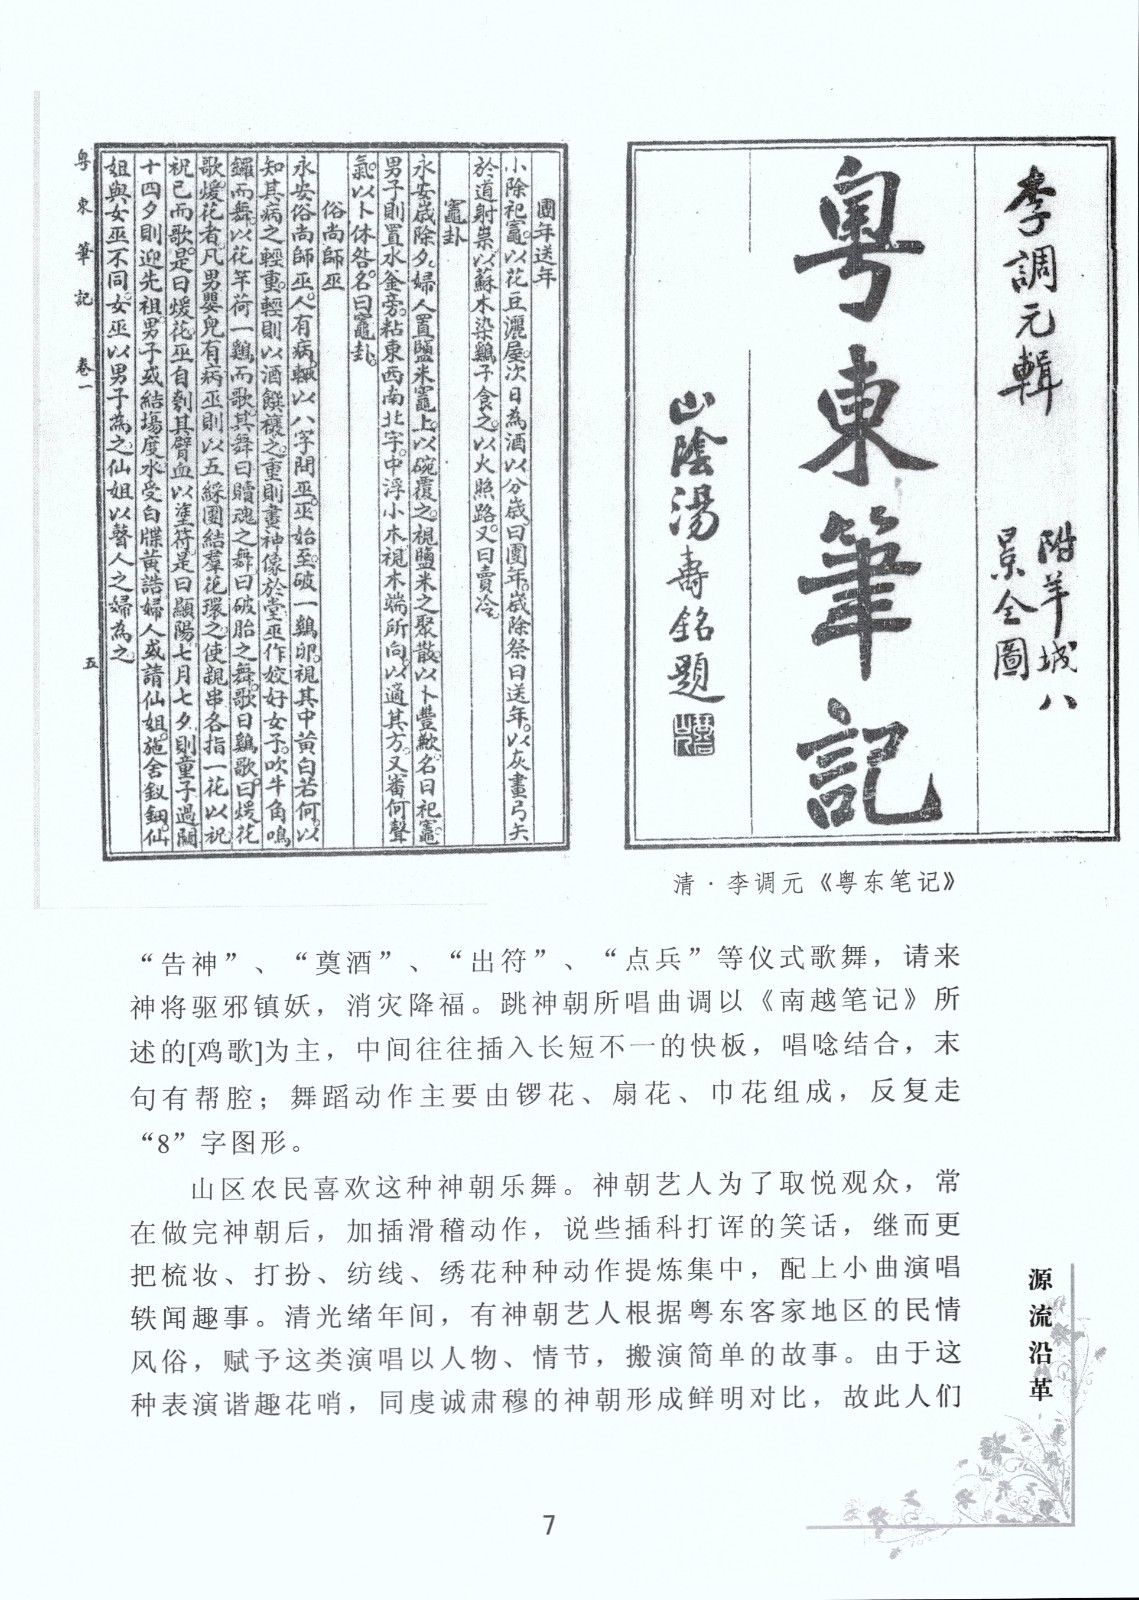 李調元輯
附羊城八
景全圖
粵東筆記
山陰湯壽銘題
團年送年
小除祀竈以花豆灑屋次日為酒以分歲曰團年歲除祭曰送年以灰畫弓矢
於道射祟以蘇木染鷄子食之以火照路又曰賣冷
竈卦
永安歲除夕婦人置鹽米竈上以碗覆之視鹽米之聚散以卜豐歉名曰祀竈
男子則置水釜旁粘東西南北字中浮小木視木端所向以適其方又審何聲
氣以卜休咎名曰竈卦
俗尚師巫
永安俗尚師巫人有病輒以八字問巫巫始至破一鷄卵視其中黃白若何以
知其病之輕重輕則以酒饌禳之重則畫神像於堂巫作姣好女子吹牛角鳴
鑼而舞以花竿荷一鷄而歌其舞曰贖魂之舞曰破胎之舞歌曰鷄歌曰煖花
歌煖花者凡男嬰兒有病巫則以五綵團結羣花環之使親串各指一花以祝
祝已而歌是曰煖花巫自刲其臂血以塗符是曰顯陽七月七夕則童子過關
十四夕則迎先祖男子或結場度水受白牒黃誥婦人或請仙姐施舍釵鈿仙
姐與女巫不同女巫以男子為之仙姐以瞽人之婦為之
粵東筆記 卷一 五
清·李调元《粤东笔记》
“告神”、“奠酒”、“出符”、“点兵”等仪式歌舞，请来
神将驱邪镇妖，消灾降福。跳神朝所唱曲调以《南越笔记》所
述的[鸡歌]为主，中间往往插入长短不一的快板，唱唸结合，末
句有帮腔；舞蹈动作主要由锣花、扇花、巾花组成，反复走
“8”字图形。
山区农民喜欢这种神朝乐舞。神朝艺人为了取悦观众，常
在做完神朝后，加插滑稽动作，说些插科打诨的笑话，继而更
把梳妆、打扮、纺线、绣花种种动作提炼集中，配上小曲演唱
轶闻趣事。清光绪年间，有神朝艺人根据粤东客家地区的民情
风俗，赋予这类演唱以人物、情节，搬演简单的故事。由于这
种表演谐趣花哨，同虔诚肃穆的神朝形成鲜明对比，故此人们
源流沿革
7